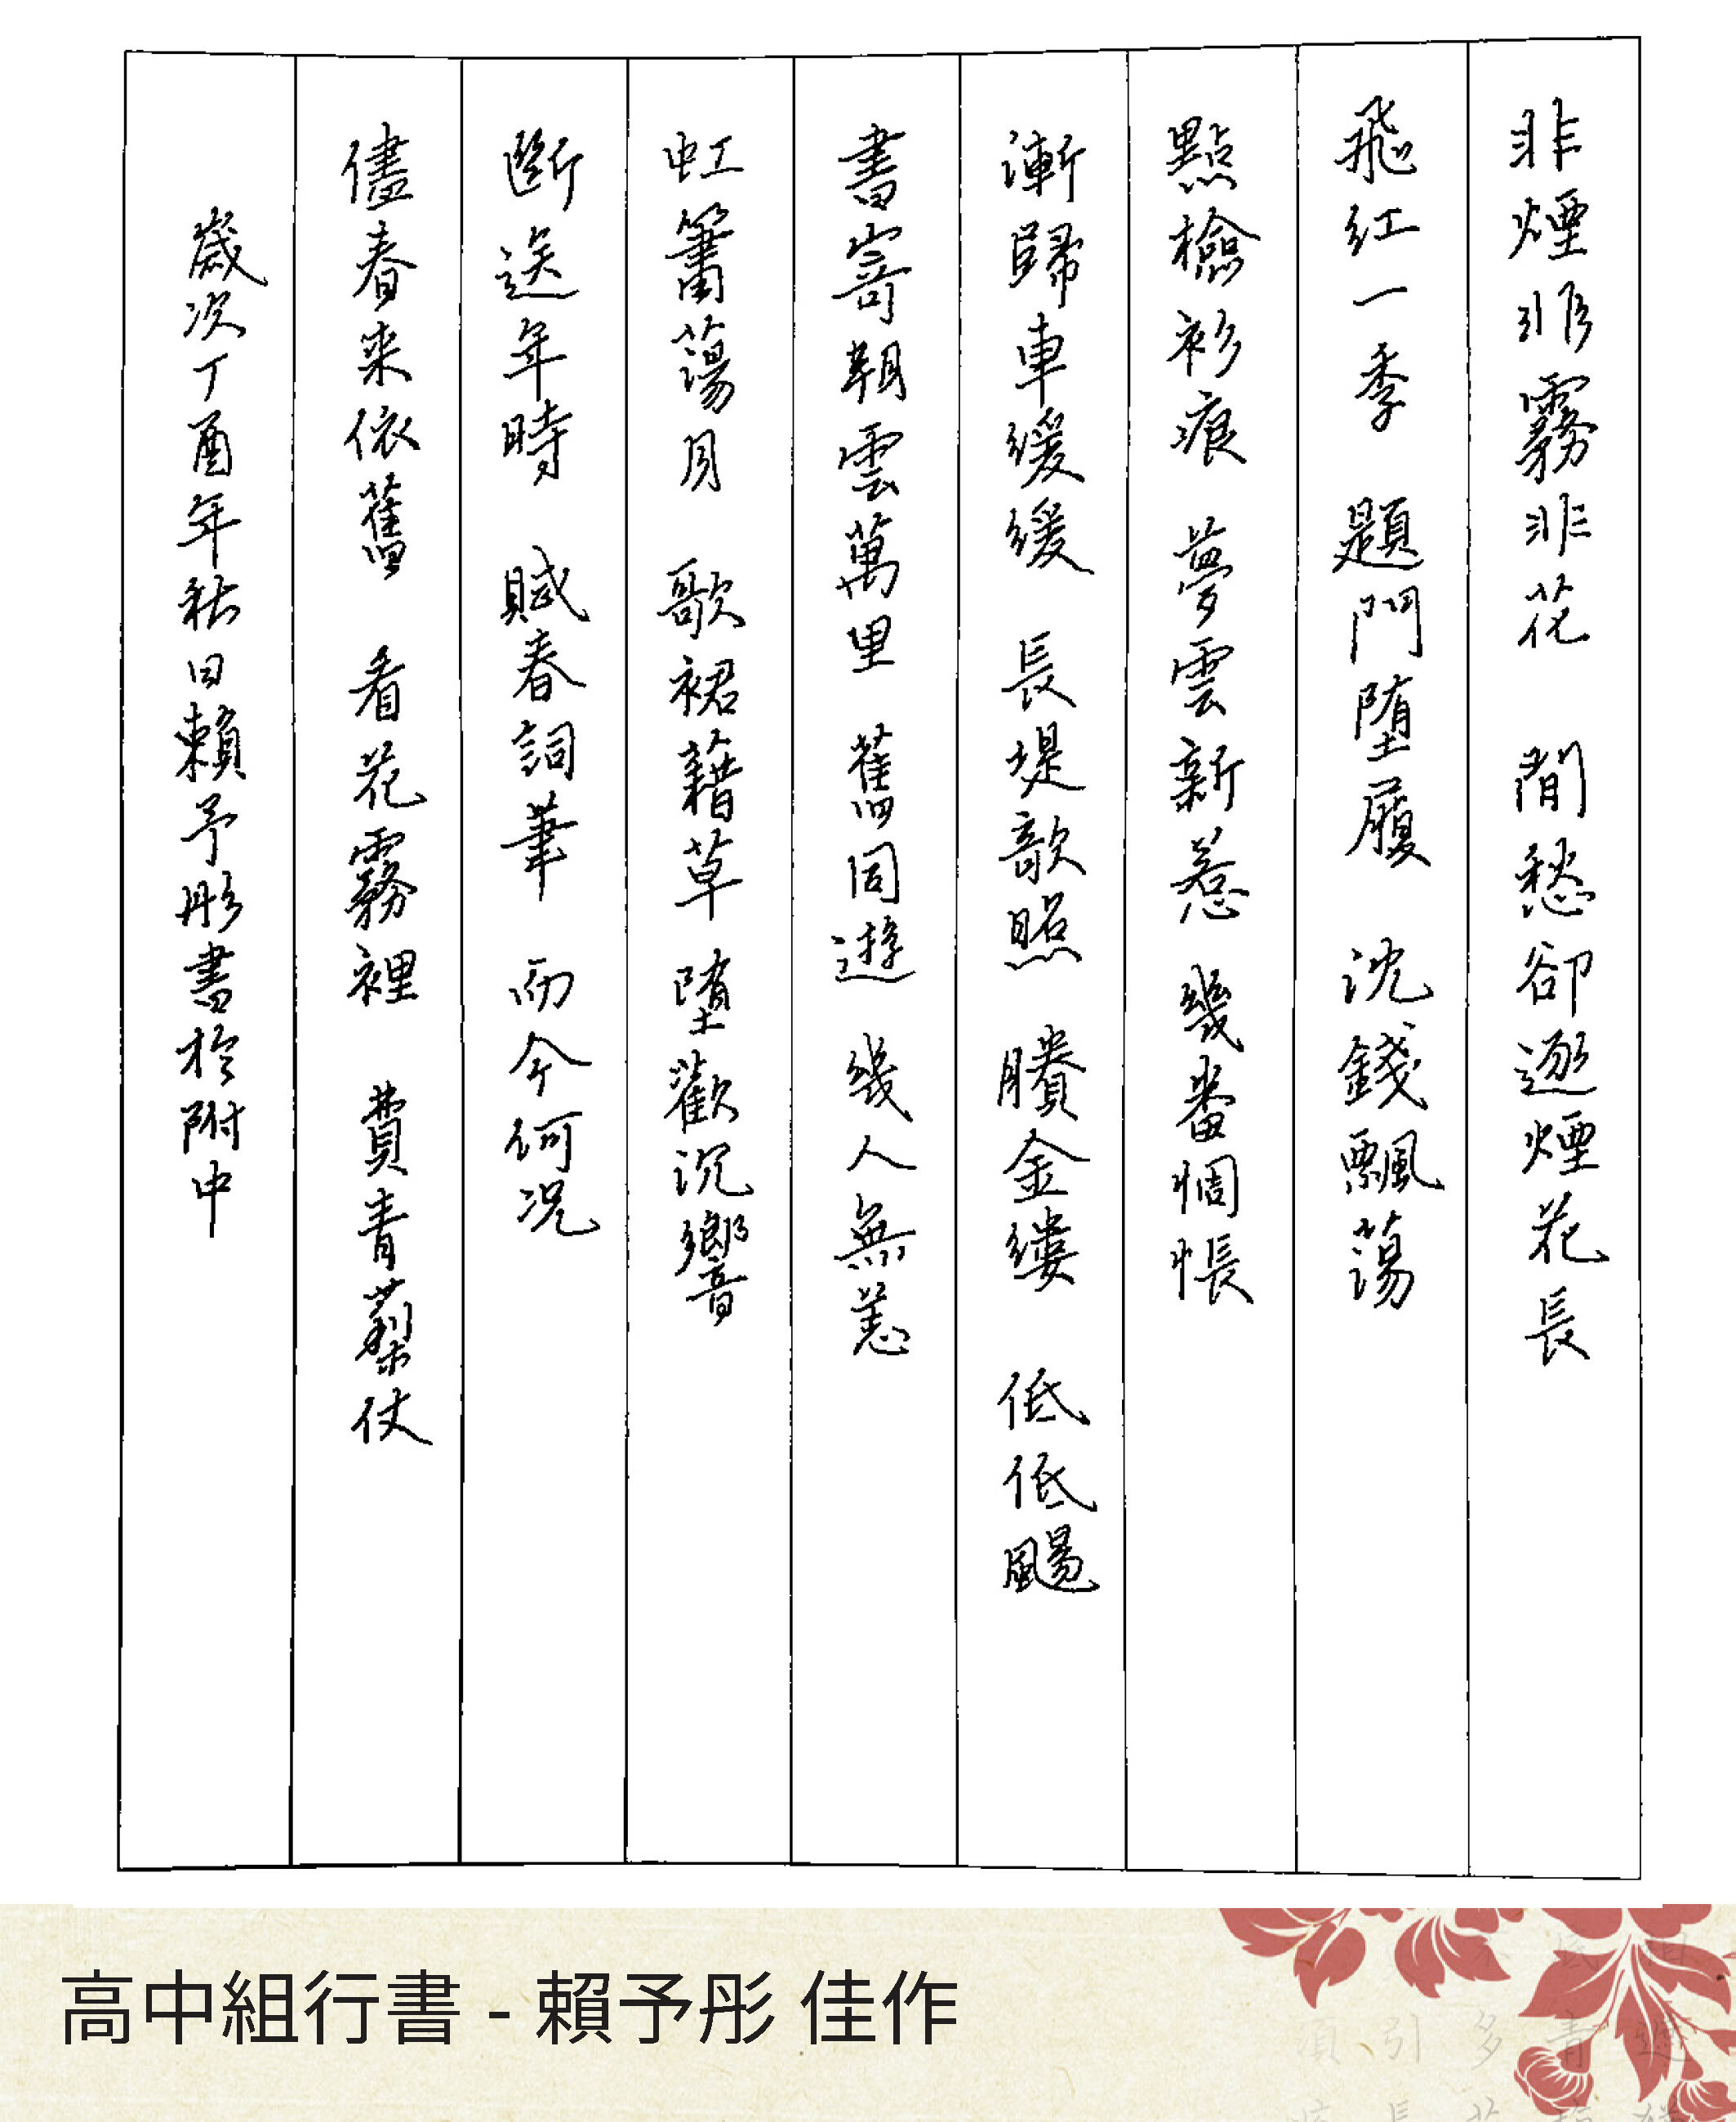 非煙非霧非花　閒愁卻逐煙花長
飛紅一季　題門墮履　沈錢飄蕩
點檢衫痕　夢雲新惹　幾番惆悵
漸歸車緩緩　長堤歆照　賸金縷　低低颺
書寄朝雲萬里　舊同遊　幾人無恙
虹簫蕩月　歌裙藉草　墮歡沉響
斷送年時　賦春詞筆　而今何況
儘春來依舊　看花霧裡　費青藜仗
歲次丁酉年秋日賴予彤書於附中
高中組行書 - 賴予彤 佳作